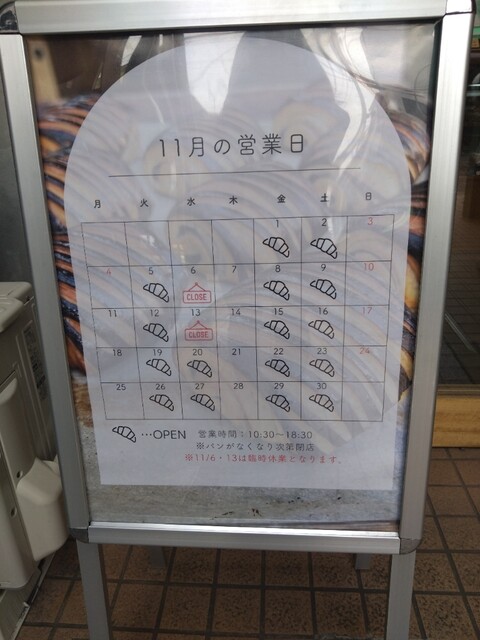 11月の営業日
月 火 水 木 金 土 日
1 2 3
4 5 6 7 8 9 10
CLOSE
11 12 13 14 15 16 17
CLOSE
18 19 20 21 22 23 24
25 26 27 28 29 30
…OPEN 営業時間：10:30〜18:30
※パンがなくなり次第閉店
※11/6・13は臨時休業となります。